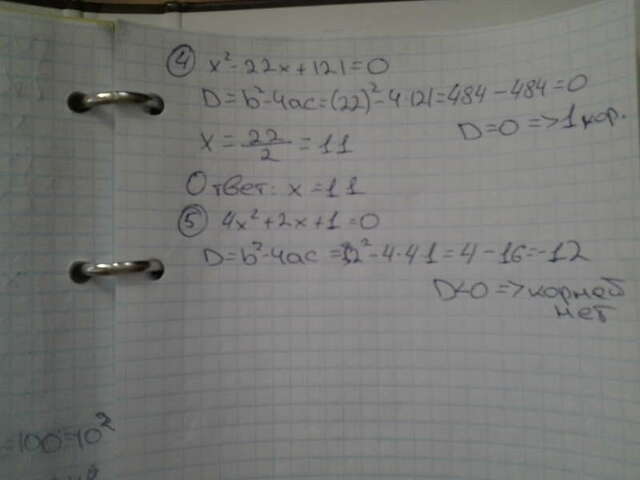 ④ x²-22x+121=0
D=b²-4ac=(22)²-4·121=484-484=0
D=0 =>1 кор.
x=22/2=11
Ответ: x=11
⑤ 4x²+2x+1=0
D=b²-4ac=2²-4·4·1=4-16=-12
D<0 =>корней
нет
=100=10²